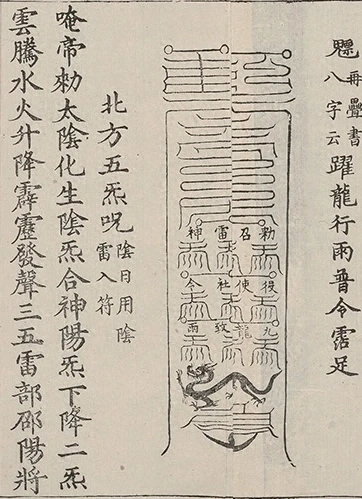 再疊書八字云躍龍行雨普令霑足
勅召雷神
役使社令
九龍致雨
北方五炁咒陰日用陰雷入符
唵帝勅太陰化生陰炁合神陽炁下降二炁
雲騰水火升降霹靂發聲三五雷部邵陽將